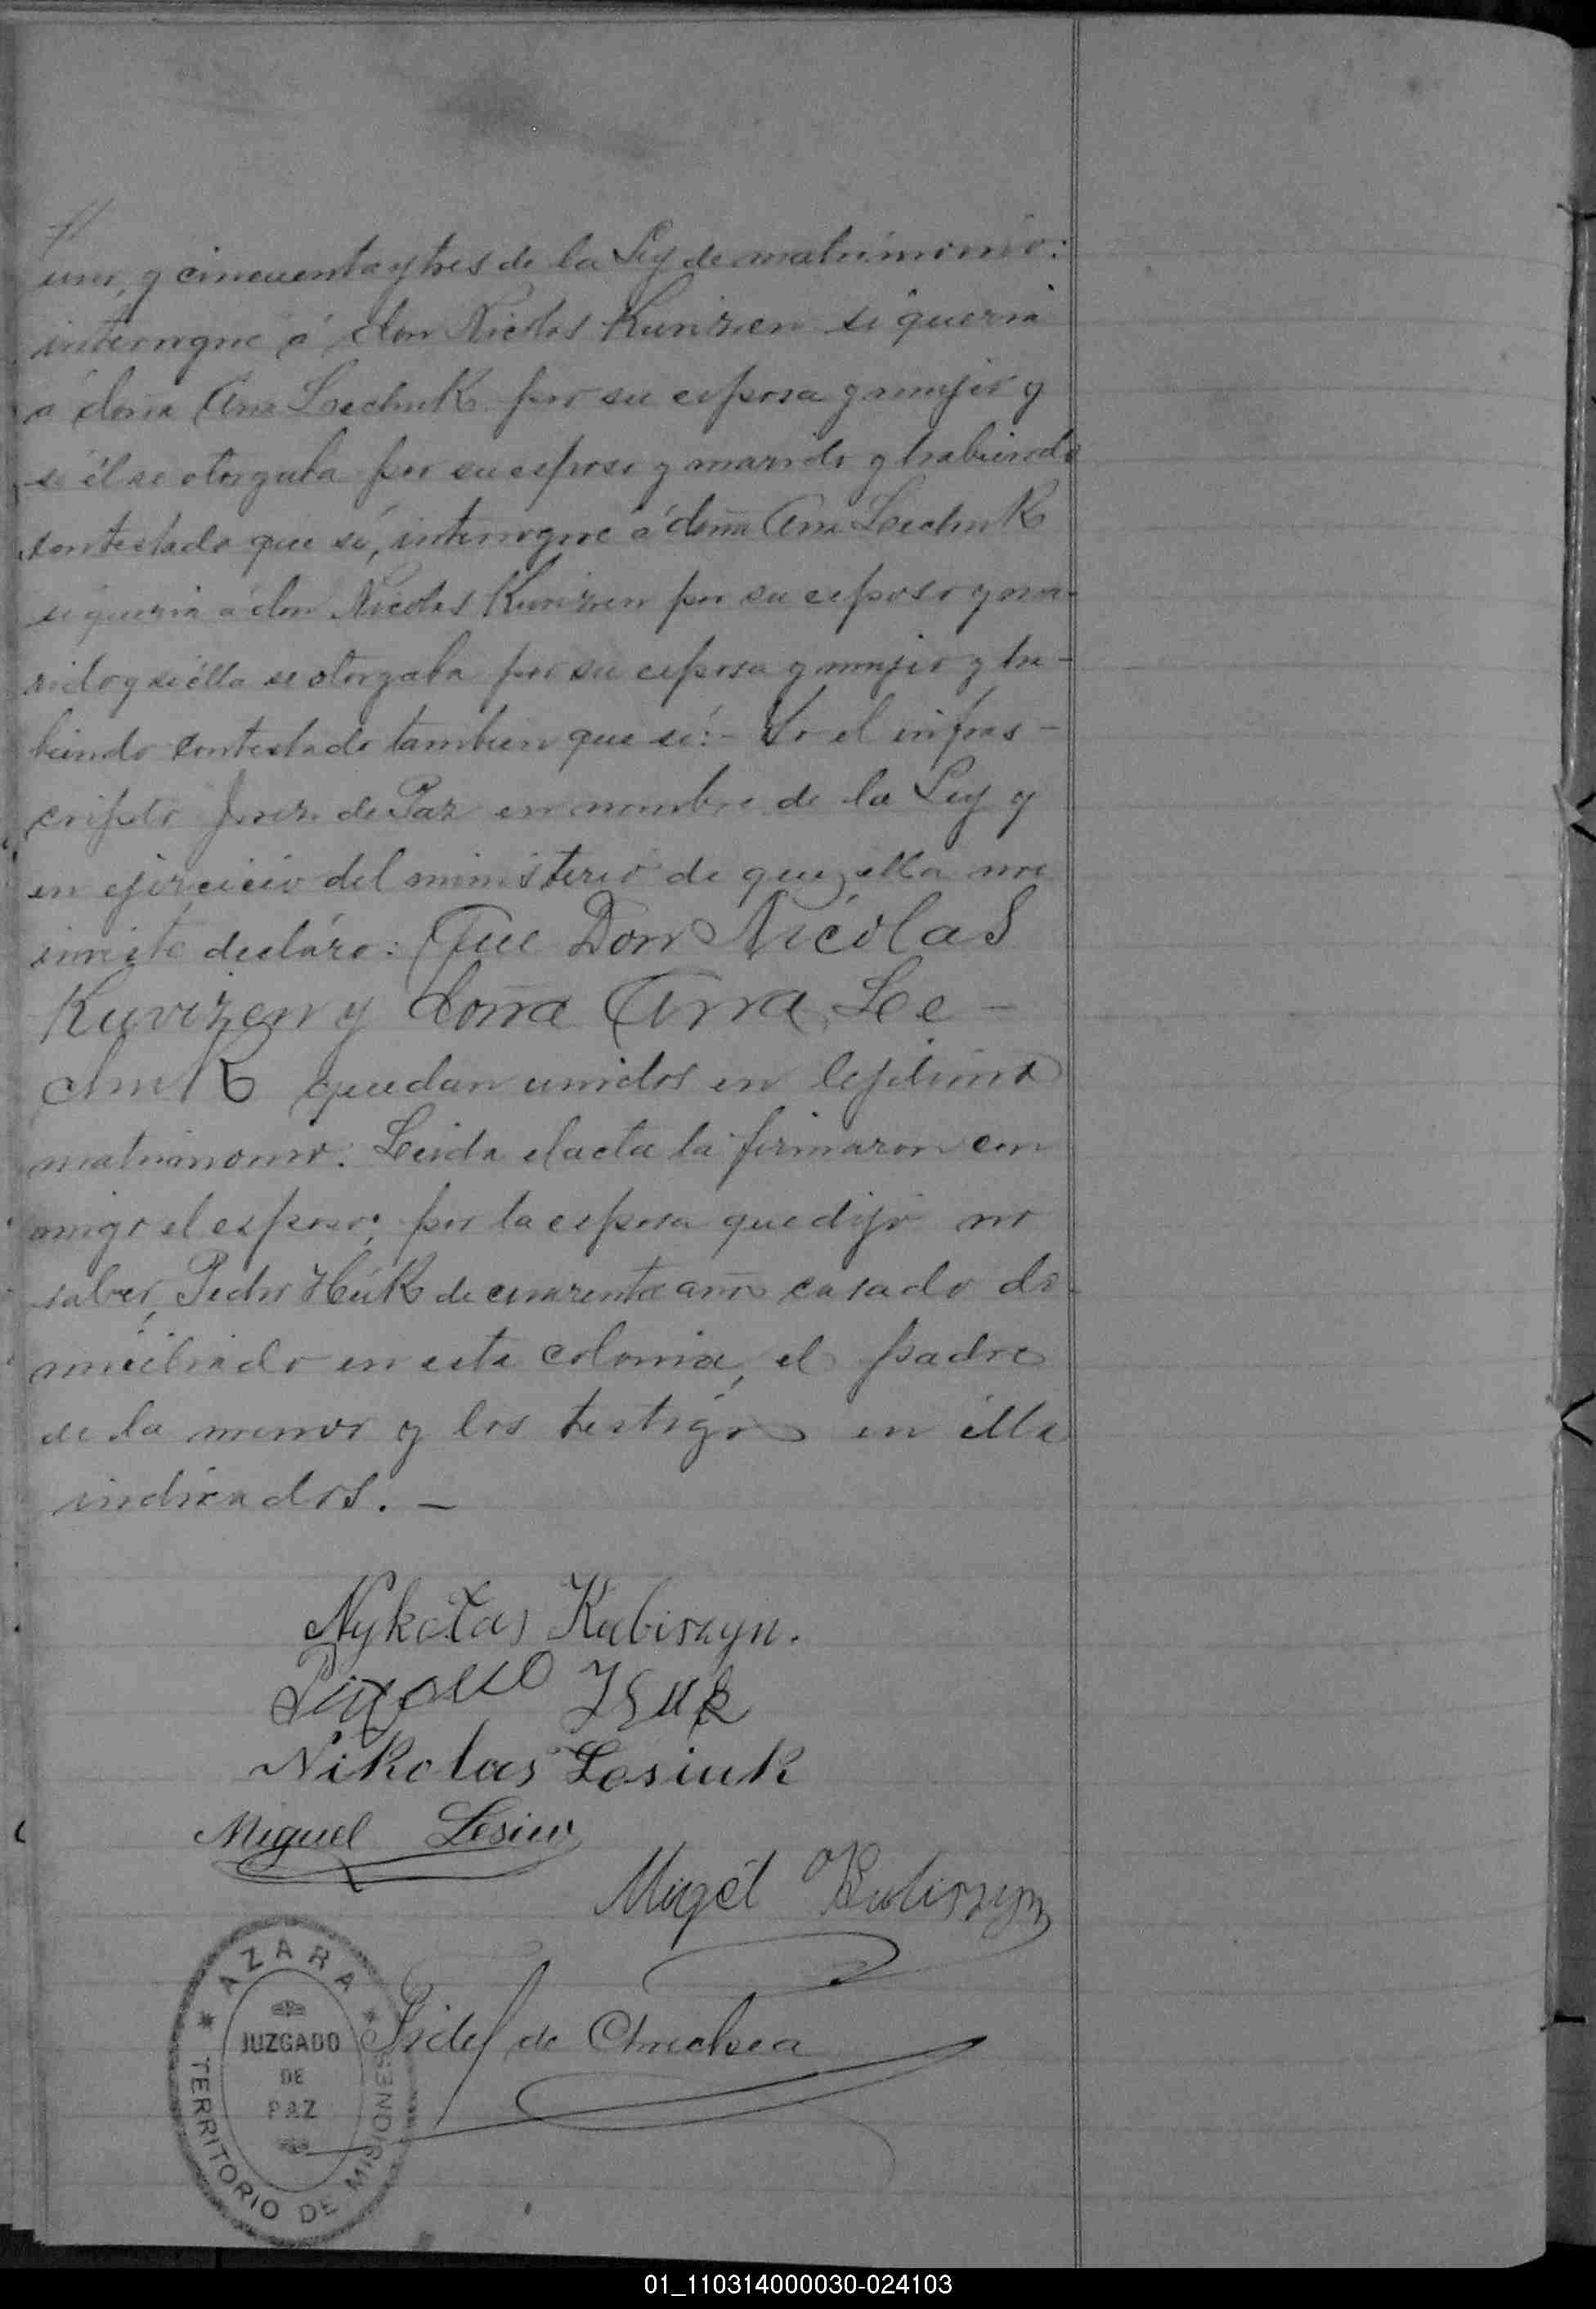 uno, y cincuenta y tres de la Ley de matrimonio:
interrogue á don Nicolas Kuvizen si queria
á doña Ana Lechuk por su esposa y mujer y
si él se otorgaba por su esposo y marido y habiendo
contestado que sí, interrogue á doña Ana Lechuk
si queria á don Nicolas Kuvizen por su esposo y ma-
rido y si élla se otorgaba por su esposa y mujer y ha-
biendo contestado tambien que sí:- Yo el infras-
cripto Juez de Paz en nombre de la Ley y
en ejercicio del ministerio de que ella me
inviste decláro: Que Don Nicolas
Kuvizen y doña Ana Le-
chuk quedan unidos en lejitimo
matrimonio. Leida el acta la firmaron con
migo el esposo; por la esposa que dijo no
saber, Pedro Huk de cuarenta años casado do-
miciliado en esta colonia, el padre
de la menor y los testigos en élla
indicados. —
Nykołas Kubiszyn.
Nikolas Lesiuk
Miguel Lesiw
Migél Kubiszyn
Fidel de Amechea
AZARA
JUZGADO
DE
PAZ
TERRITORIO DE MISIONES
01_110314000030-024103